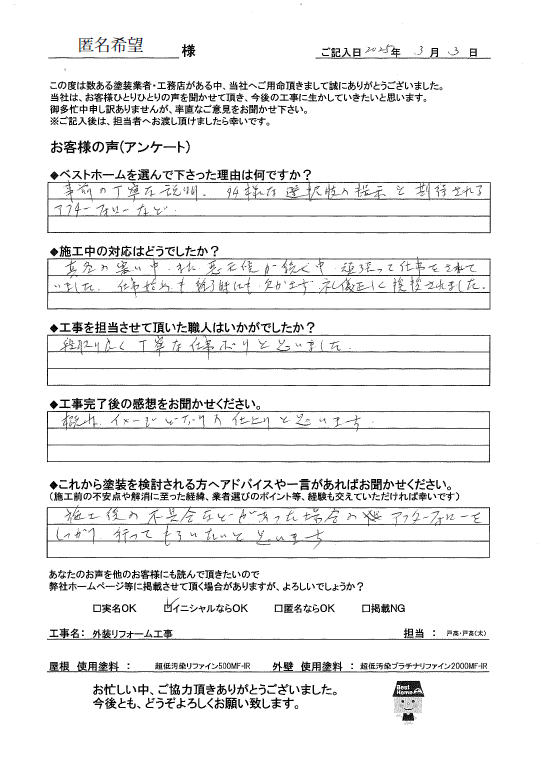 匿名希望 様
ご記入日 2025年 3月 3日
この度は数ある塗装業者・工務店がある中、当社へご用命頂きまして誠にありがとうございました。
当社は、お客様ひとりひとりの声を聞かせて頂き、今後の工事に生かしていきたいと思います。
御多忙中申し訳ありませんが、率直なご意見をお聞かせ下さい。
※ご記入後は、担当者へお渡し頂けましたら幸いです。
お客様の声(アンケート)
◆ベストホームを選んで下さった理由は何ですか？
事前の丁寧な説明、多様な選択性の指示と期待される
アフターフォローなど。
◆施工中の対応はどうでしたか？
真冬の寒い中、また悪天候が続く中、頑張って仕事をされて
いました。仕事始めも終了時にも欠かさず、礼儀正しく挨拶されました。
◆工事を担当させて頂いた職人はいかがでしたか？
段取り良く丁寧な仕事ぶりと思いました。
◆工事完了後の感想をお聞かせください。
概ね、イメージどおりの仕上りと思います。
◆これから塗装を検討される方へアドバイスや一言があればお聞かせください。
(施工前の不安点や解消に至った経緯、業者選びのポイント等、経験も交えていただければ幸いです)
施工後の不具合などがあった場合の アフターフォローを
しっかり行ってもらいたいと思います
あなたのお声を他のお客様にも読んで頂きたいので
弊社ホームページ等に掲載させて頂く場合がありますが、よろしいでしょうか？
□実名OK ☑イニシャルならOK □匿名ならOK □掲載NG
工事名： 外装リフォーム工事 担当： 戸高・戸高(太)
屋根 使用塗料： 超低汚染リファイン500MF-IR 外壁 使用塗料： 超低汚染プラチナリファイン2000MF-IR
お忙しい中、ご協力頂きありがとうございました。
今後とも、どうぞよろしくお願い致します。
Best
Home